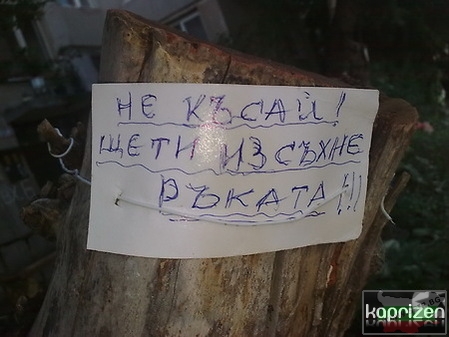 НЕ КЪСАЙ!
ЩЕТИ ИЗСЪХНЕ
РЪКАТА!!!
kaprizen